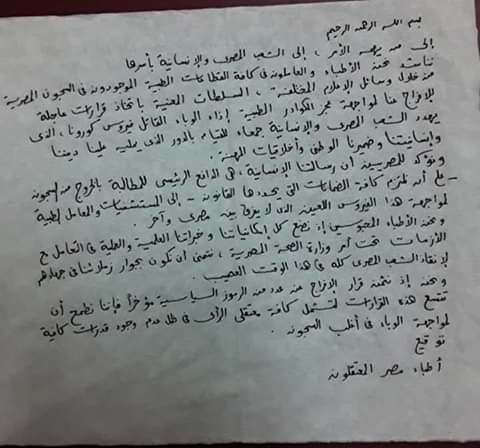 بسم الله الرحمن الرحيم
إلى من يهمه الأمر ، إلى الشعب المصرى والإنسانية بأسرها
نناشد نحن الأطباء والعاملون فى كافة القطاعات الطبية الموجودون فى السجون المصرية
من خلال وسائل الإعلام المختلفة ، السلطات المعنية باتخاذ قرارات عاجلة
للإفراج عنا لمواجهة عجز الكوادر الطبية إزاء الوباء القاتل فيروس كورونا ، الذى
يهدد الشعب المصرى والإنسانية جمعاء للقيام بالدور الذى يمليه علينا ديننا
وإنسانيتنا وضميرنا الوطنى وأخلاقيات المهنة .
ونؤكد للمصريين أن رسالتنا الإنسانية ، هى الدافع الرئيسى للمطالبة بالخروج من السجون
- على أن نلتزم كافة الضمانات التى يحددها القانون - إلى المستشفيات والمعامل الطبية
لمواجهة هذا الفيروس اللعين الذى لا يفرق بين مصرى وآخر .
ونحن الأطباء المحبوسين إذ نضع كل إمكانياتنا وخبراتنا العلمية والعملية فى التعامل مع
الأزمات تحت أمر وزارة الصحة المصرية ، نتمنى أن نكون بجوار زملائنا فى جهادهم
لإنقاذ الشعب المصرى كله فى هذا الوقت العصيب .
ونحن إذ نثمن قرار الإفراج عن عدد من الرموز السياسية مؤخراً فإننا نطمح أن
تتسع هذه القرارات لتشمل كافة معتقلى الرأى فى ظل عدم وجود قدرات كافية
لمواجهة الوباء فى أغلب السجون .
توقيع
أطباء مصر المعتقلون